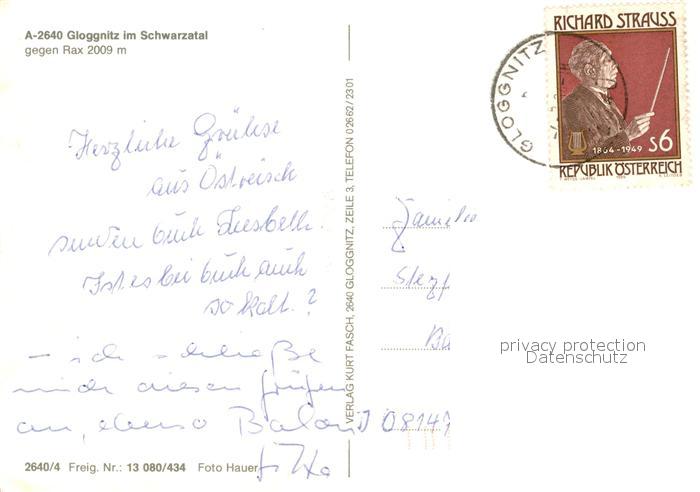 A-2640 Gloggnitz im Schwarzatal
gegen Rax 2009 m
RICHARD STRAUSS
1864-1949
S6
REPUBLIK ÖSTERREICH
GLOGGNITZ
VERLAG KURT FASCH, 2640 GLOGGNITZ, ZEILE 3, TELEFON 0 26 62 / 23 01
Herzliche Grüße
aus Östreich
senden Euch
Ist es bei Euch auch
so kalt?
– ich schließe
mich diesen Grüßen
an, ebenso
privacy protection
Datenschutz
2640/4 Freig. Nr.: 13 080/434 Foto Hauer